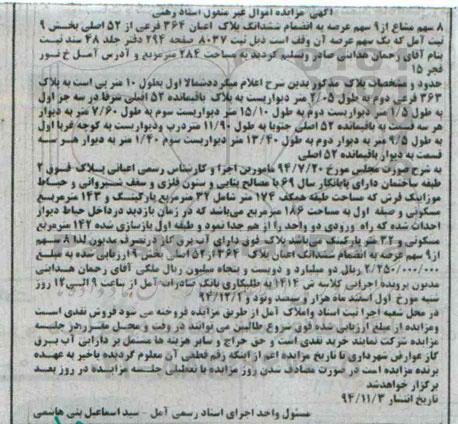 آگهی مزایده اموال غیر منقول اسناد رهنی
۸ سهم مشاع از ۹ سهم عرصه به انضمام ششدانگ پلاک اعیان ۳۶۴ فرعی از ۵۲ اصلی بخش ۹
ثبت آمل که یک سهم عرصه آن وقف است ذیل ثبت ۸۰۳۷ صفحه ۲۹۴ دفتر جلد ۴۸ سند ثبت
بنام آقای رحمان هدایتی صادر وتسلیم گردید به مساحت ۲۸۴ مترمربع و آدرس آمل خ نور
فجر ۱۵
حدود و مشخصات پلاک مذکور بدین شرح اعلام میگرددشمالا اول بطول ۱۰ متر پی است به پلاک
۳۶۳ فرعی دوم به طول ۲/۰۵ متر دیواریست به پلاک باقیمانده ۵۲ اصلی شرقا در سه جز اول
به طول ۱۱/۵ متر دیواریست دوم به طول ۱۵/۱۰ متر دیواریست سوم به طول ۷/۶۰ متر به دیوار
هر سه قسمت به باقیمانده ۵۲ اصلی جنوبا به طول ۱۱/۹۰ متردرب ودیواریست به کوچه غربا اول
به طول ۹/۵ متر به دیوار دوم به طول ۱۳/۴۰ متر دیواریست سوم ۱/۴۰ متر به دیوار هر سه
قسمت به دیوار باقیمانده ۵۲ اصلی
به شرح صورت مجلس مورخ ۹۴/۷/۲۰ مامورین اجرا و کارشناس رسمی اعیانی پلاک فوق ۲
طبقه ساختمان دارای پایانکار سال ۶۹ با مصالح بنایی و ستون فلزی و سقف شیروانی و حیاط
موزاییک فرش که مساحت طبقه همکف ۱۷۴ متر شامل ۳۲ مترمربع پارکینگ و ۱۴۳ مترمربع
مسکونی و طبقه اول به مساحت ۱۸۶ مترمربع میباشد که در زمان بازدید درداخل حیاط دیوار
احداث شده که راه ورودی دو واحد را از هم جدا نمود و طبقه اول بازسازی شده ۱۴۲ مترمربع
مسکونی و ۳۲ متر پارکینگ میباشد پلاک فوق دارای آب برق گاز در تصرف مدیون لذا ۸ سهم
از۹ سهم عرصه به انضمام ششدانگ اعیان پلاک ۳۶۴ از ۵۲ اصلی بخش ۹ ارزیابی شده به مبلغ
۲/۲۵۰/۰۰۰/۰۰۰ ریال دو میلیارد و دویست و پنجاه میلیون ریال ملکی آقای رحمان هدایتی
مدیون پرونده اجرایی کلاسه ش ۱۴۱۲ به طلبکاری بانک صادرات آمل از ساعت ۹ الی ۱۲ روز
شنبه مورخ اول اسفند ماه هزار و سیصد ونود و ۹۴/۱۲/۲
در محل شعبه اجرا ثبت اسناد واملاک آمل از طریق مزایده فروخته می شود فروش نقدی است
ومزایده از مبلغ ارزیابی شده فوق شروع طالبین می توانند در وقت و محل مقرردر جلسه
مزایده شرکت نمایند خرید نقدی است و حق حراج و سایر هزینه ها مشتمل بر دارایی آب برق
گاز عوارض شهرداری تا تاریخ مزایده اعم از اینکه رقم قطعی آن معلوم گردیده یاخیر به عهده
برنده مزایده است در صورت مصادف شدن روز مزایده با تعطیلی جلسه مزایده در روز بعد
برگزار خواهدشد
تاریخ انتشار ۹۴/۱۱/۳
مسئول واحد اجرای اسناد رسمی آمل - سید اسماعیل بنی هاشمی